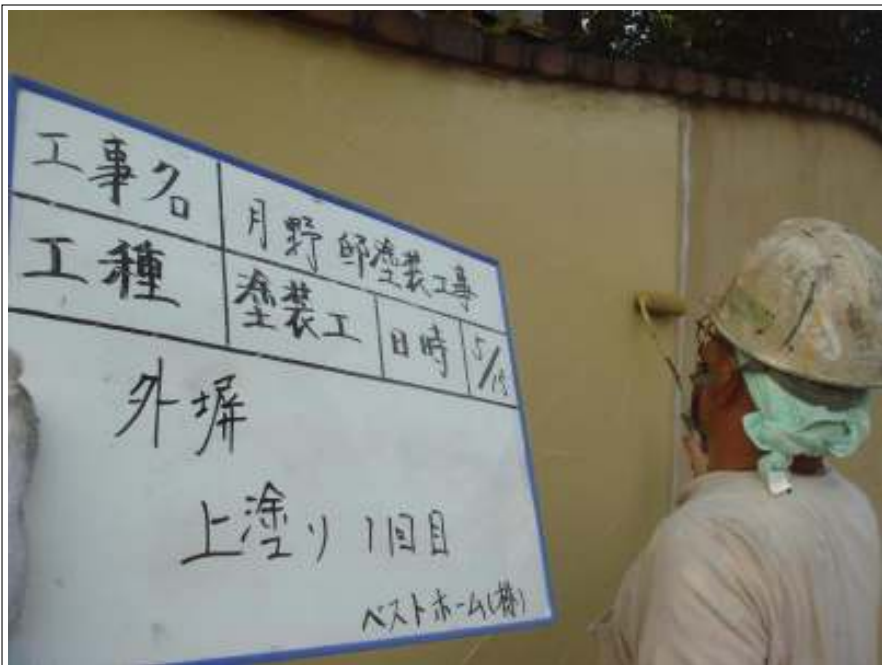 工事名 月野邸塗装工事
工種 塗装工 日時 5/15
外塀
上塗り 1回目
ベストホーム(株)